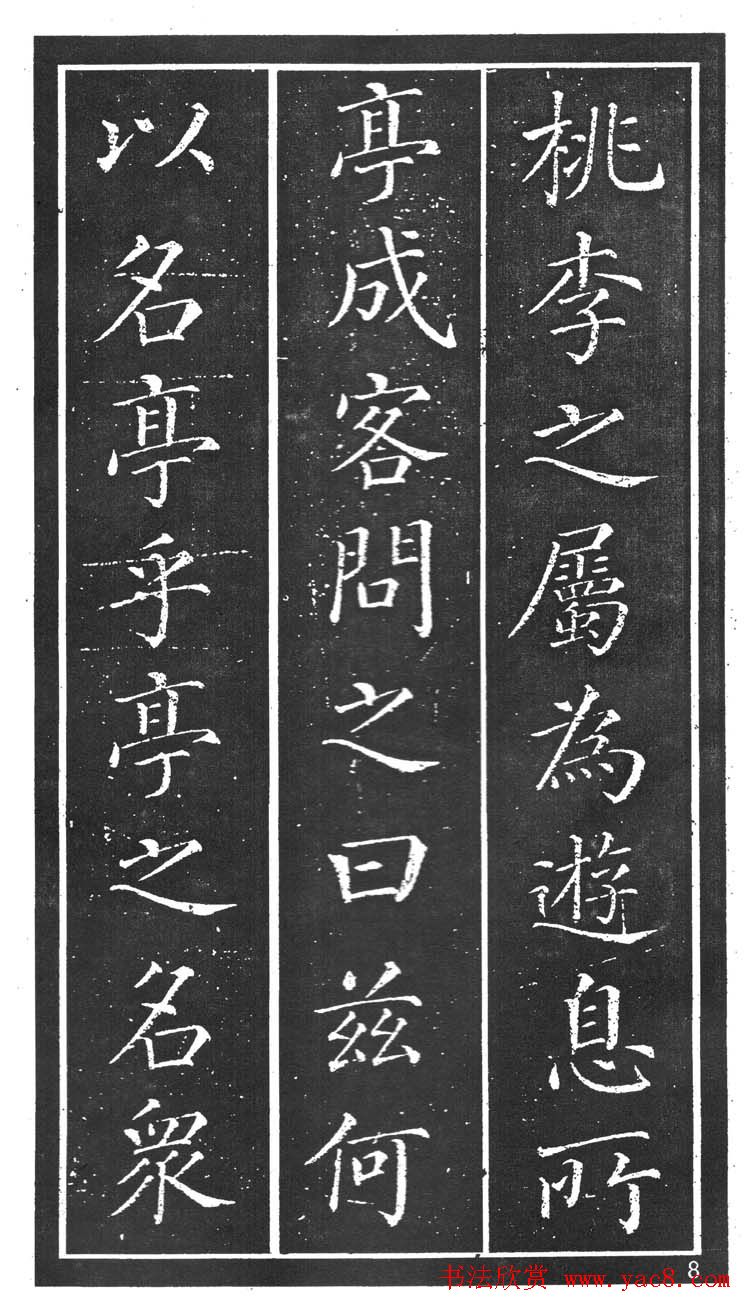 桃李之屬為遊息所
亭成客問之曰茲何
以名亭乎亭之名眾
8
书法欣赏 www.yac8.com